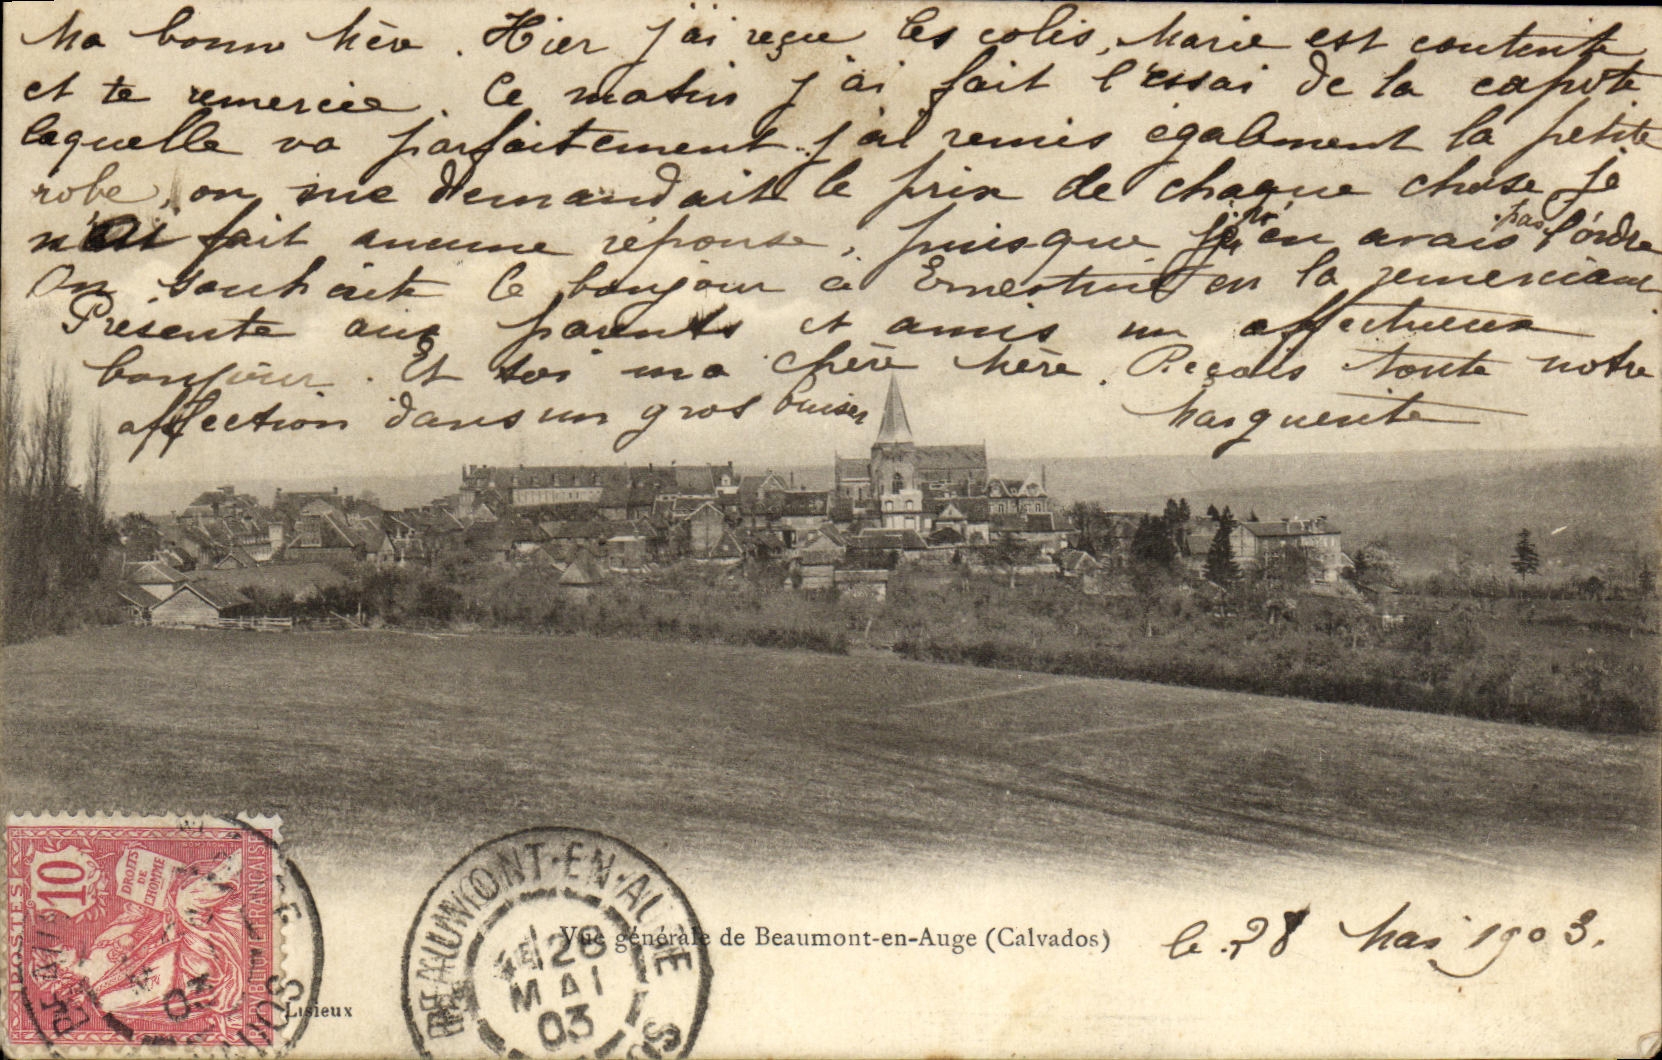 Ma bonne Mère. Hier j'ai reçue les colis, Marie est contente
et te remerciée. Ce matin j'ai fait l'essai de la capote
laquelle va parfaitement. j'ai remis également la petite
robe, on me demandait le prix de chaque chose, je
fait aucune réponse, puisque je n'en avais pas l'ordre
On souhaite le bonjour à Ernestine en la remerciant
Présente aux parents et amis un affectueux
bonjour. Et toi ma chère Mère. Reçois toute notre
affection dans un gros baiser
Marguerite
10
POSTES
DROITS
DE
L'HOMME
RÉPUBLIQUE FRANÇAISE
BEAUMONT-EN-AUGE
28
MAI
03
Vue générale de Beaumont-en-Auge (Calvados)
le 28 Mai 1903.
Lisieux